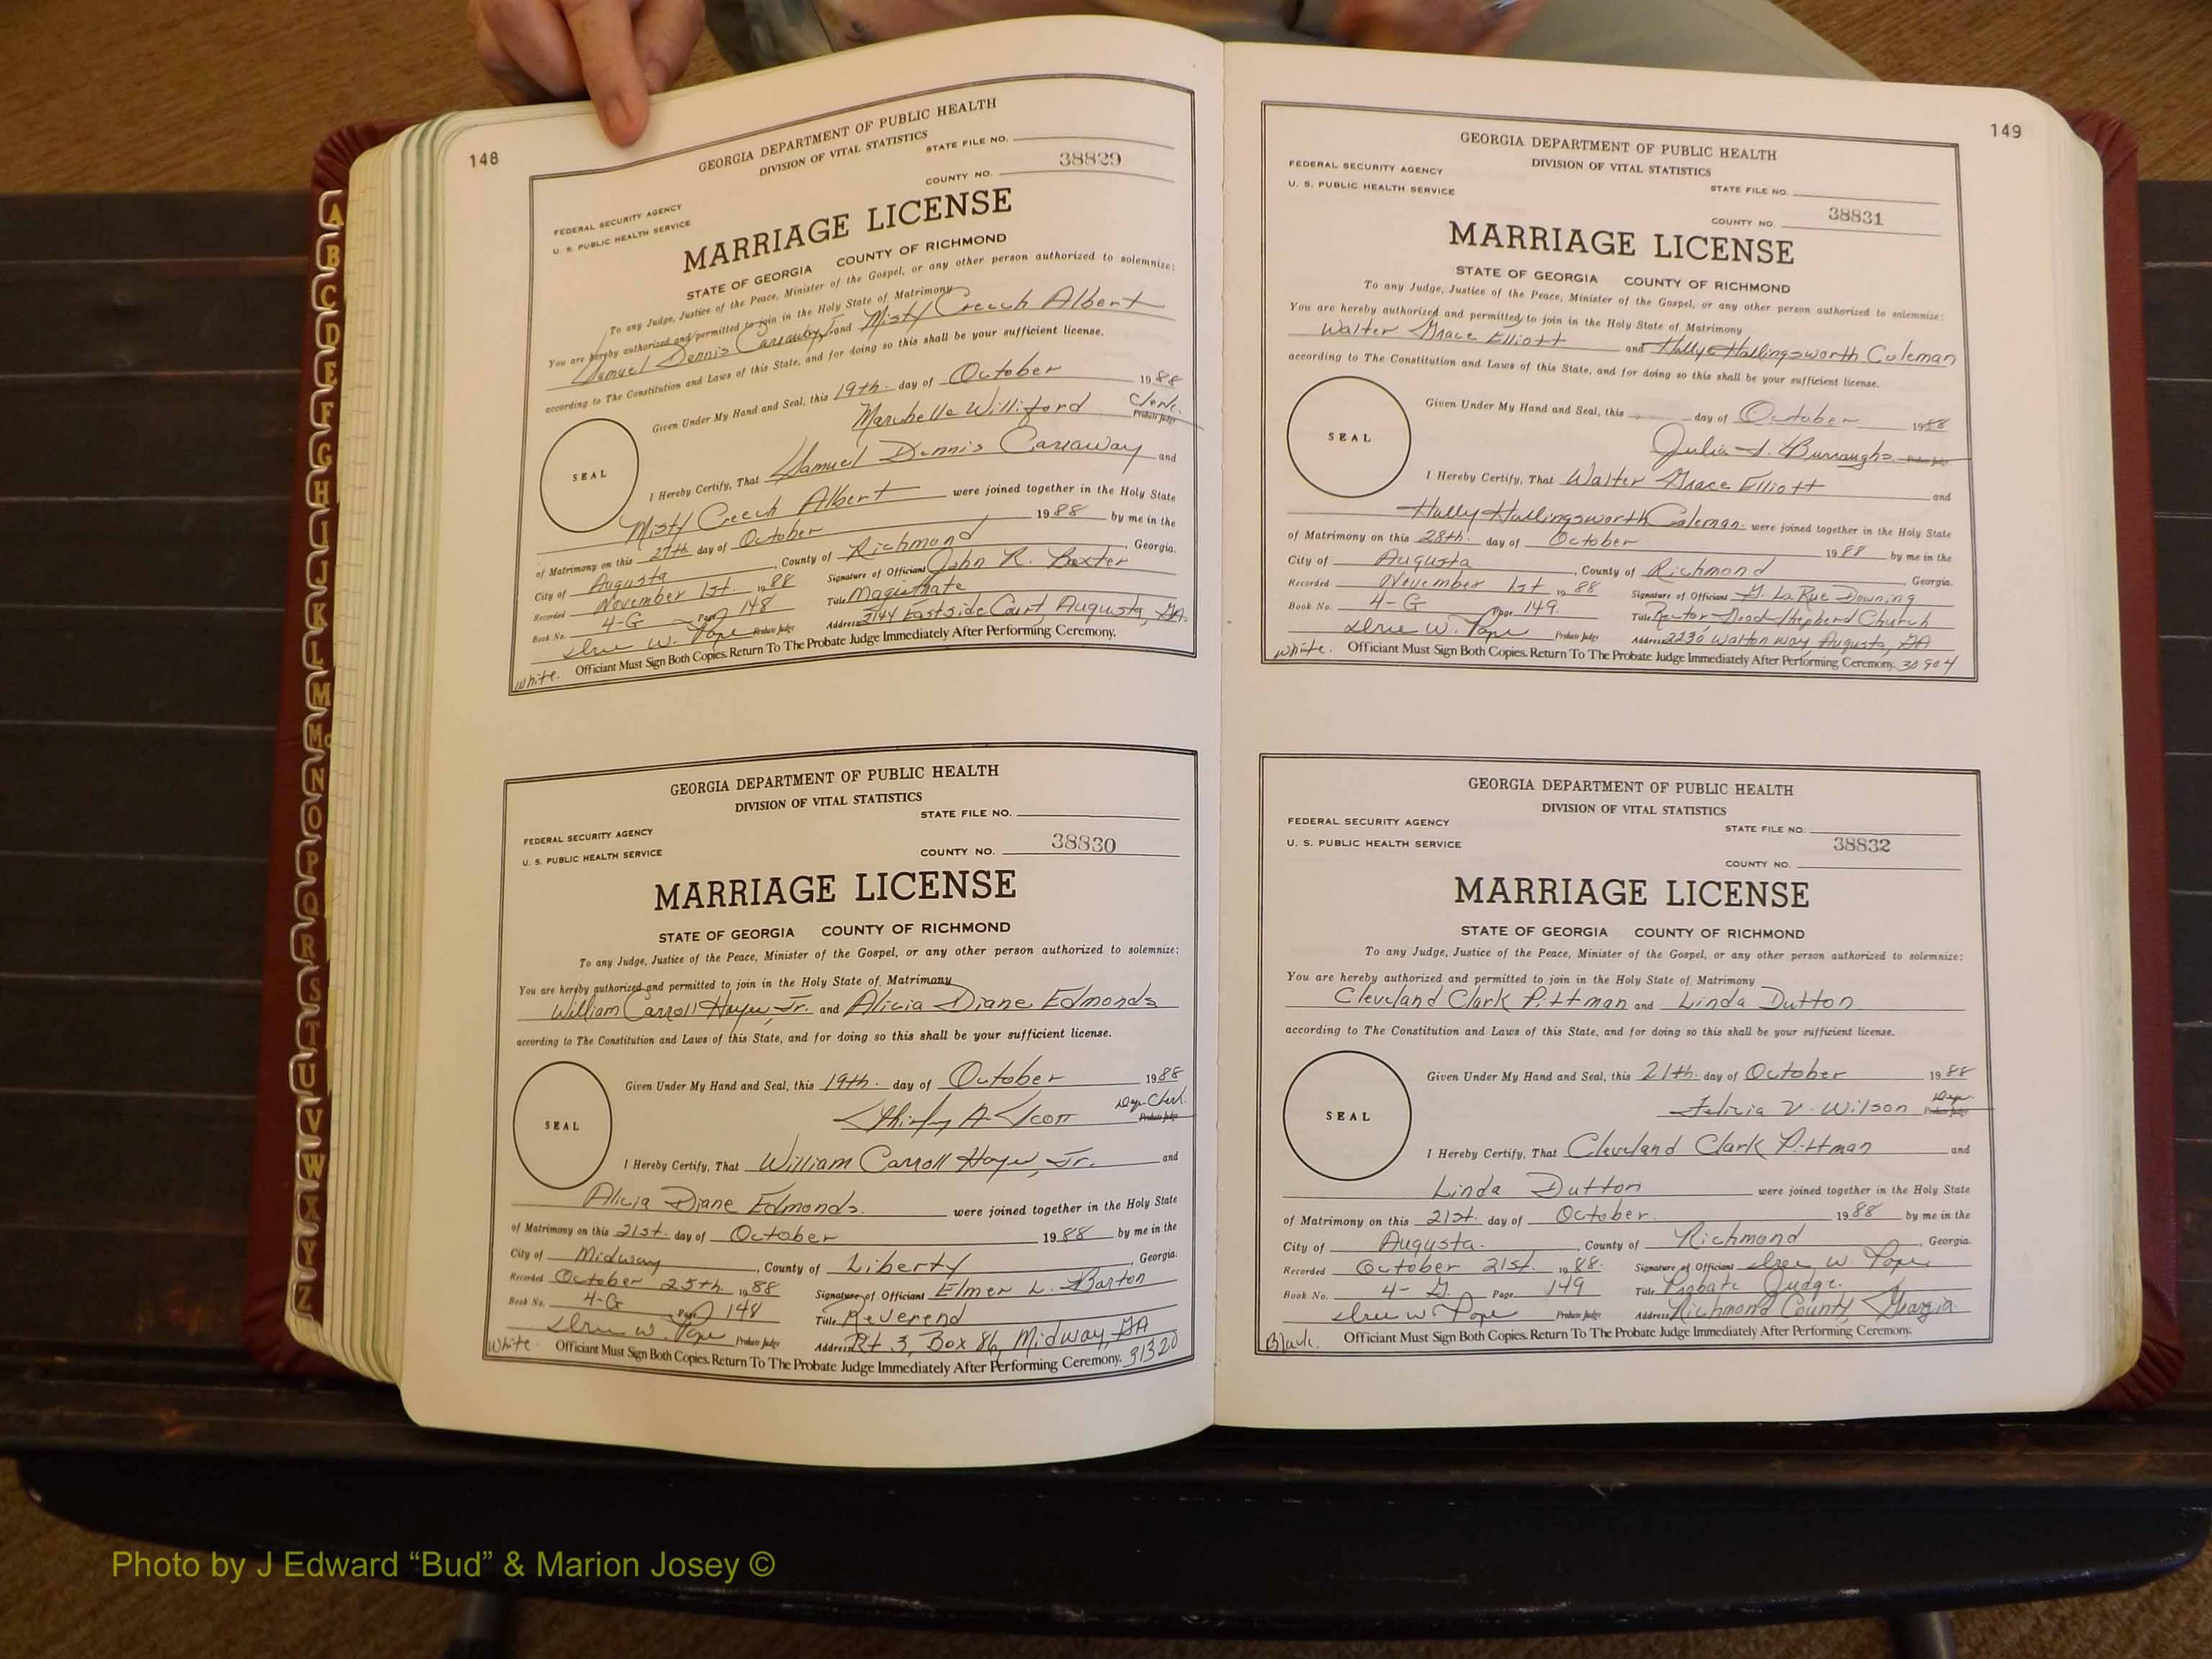 148
GEORGIA DEPARTMENT OF PUBLIC HEALTH
DIVISION OF VITAL STATISTICS
STATE FILE NO.
38829
COUNTY NO.
FEDERAL SECURITY AGENCY
U. S. PUBLIC HEALTH SERVICE
MARRIAGE LICENSE
STATE OF GEORGIA COUNTY OF RICHMOND
To any Judge, Justice of the Peace, Minister of the Gospel, or any other person authorized to solemnize:
You are hereby authorized and permitted to join in the Holy State of Matrimony
Samuel Dennis Carraway and Misty Creech Albert
according to The Constitution and Laws of this State, and for doing so this shall be your sufficient license.
Given Under My Hand and Seal, this 19th. day of October 1988
Marchelle Williford Clerk. Probate Judge
SEAL
I Hereby Certify, That Samuel Dennis Carraway and
Misty Creech Albert were joined together in the Holy State
of Matrimony on this 27th. day of October 1988 by me in the
City of Augusta, County of Richmond, Georgia.
Recorded November 1st. 1988 Signature of Officiant John R. Baxter
Book No. 4-G Page 148 Title Magistrate
Probate Judge Address 3144 Eastside Court, Augusta, GA.
Officiant Must Sign Both Copies. Return To The Probate Judge Immediately After Performing Ceremony.
White.
GEORGIA DEPARTMENT OF PUBLIC HEALTH
DIVISION OF VITAL STATISTICS
STATE FILE NO.
FEDERAL SECURITY AGENCY
38830
U. S. PUBLIC HEALTH SERVICE COUNTY NO.
MARRIAGE LICENSE
STATE OF GEORGIA COUNTY OF RICHMOND
To any Judge, Justice of the Peace, Minister of the Gospel, or any other person authorized to solemnize:
You are hereby authorized and permitted to join in the Holy State of Matrimony
William Carroll Jr. and Alicia Diane Edmonds
according to The Constitution and Laws of this State, and for doing so this shall be your sufficient license.
Given Under My Hand and Seal, this 19th. day of October 1988
Shirley A. Scott Dep. Clerk. Probate Judge
SEAL
I Hereby Certify, That William Carroll Jr. and
Alicia Diane Edmonds. were joined together in the Holy State
of Matrimony on this 21st. day of October 1988 by me in the
City of Midway, County of Liberty, Georgia.
Recorded October 25th. 1988 Signature of Officiant Elmer L. Barton
Book No. 4-G Page 148 Title Reverend
Probate Judge Address Rt 3, Box 86, Midway, GA
White. Officiant Must Sign Both Copies. Return To The Probate Judge Immediately After Performing Ceremony. 31320
149
GEORGIA DEPARTMENT OF PUBLIC HEALTH
DIVISION OF VITAL STATISTICS
FEDERAL SECURITY AGENCY
U. S. PUBLIC HEALTH SERVICE STATE FILE NO.
38831
COUNTY NO.
MARRIAGE LICENSE
STATE OF GEORGIA COUNTY OF RICHMOND
To any Judge, Justice of the Peace, Minister of the Gospel, or any other person authorized to solemnize:
You are hereby authorized and permitted to join in the Holy State of Matrimony
Walter Grace Elliott and Holly Hollingsworth Coleman
according to The Constitution and Laws of this State, and for doing so this shall be your sufficient license.
Given Under My Hand and Seal, this day of October 1988
Julia Burroughs. Probate Judge
SEAL
I Hereby Certify, That Walter Grace Elliott and
Holly Hollingsworth Coleman were joined together in the Holy State
of Matrimony on this 28th. day of October 1988 by me in the
City of Augusta, County of Richmond, Georgia.
Recorded November 1st 1988 Signature of Officiant G. LaRue Downing
Book No. 4-G Page 149. Title Rector-Good Shepherd Church
Probate Judge Address 2230 Walton Way, Augusta, GA
White. Officiant Must Sign Both Copies. Return To The Probate Judge Immediately After Performing Ceremony. 30904
GEORGIA DEPARTMENT OF PUBLIC HEALTH
DIVISION OF VITAL STATISTICS
FEDERAL SECURITY AGENCY STATE FILE NO.
U. S. PUBLIC HEALTH SERVICE 38832
COUNTY NO.
MARRIAGE LICENSE
STATE OF GEORGIA COUNTY OF RICHMOND
To any Judge, Justice of the Peace, Minister of the Gospel, or any other person authorized to solemnize:
You are hereby authorized and permitted to join in the Holy State of Matrimony
Cleveland Clark Pittman and Linda Dutton
according to The Constitution and Laws of this State, and for doing so this shall be your sufficient license.
Given Under My Hand and Seal, this 21th. day of October 1988
Felicia V. Wilson Dep. Probate Judge
SEAL
I Hereby Certify, That Cleveland Clark Pittman and
Linda Dutton were joined together in the Holy State
of Matrimony on this 21st. day of October. 1988 by me in the
City of Augusta., County of Richmond, Georgia.
Recorded October 21st. 1988. Signature of Officiant W. Pope
Book No. 4-G. Page 149 Title Probate Judge.
Probate Judge Address Richmond County, Georgia.
Black. Officiant Must Sign Both Copies. Return To The Probate Judge Immediately After Performing Ceremony.
A
B
C
D
E
F
G
H
I
J
K
L
M
Mc
N
O
P
Q
R
S
T
U
V
W
X
Y
Z
Photo by J Edward “Bud” & Marion Josey ©